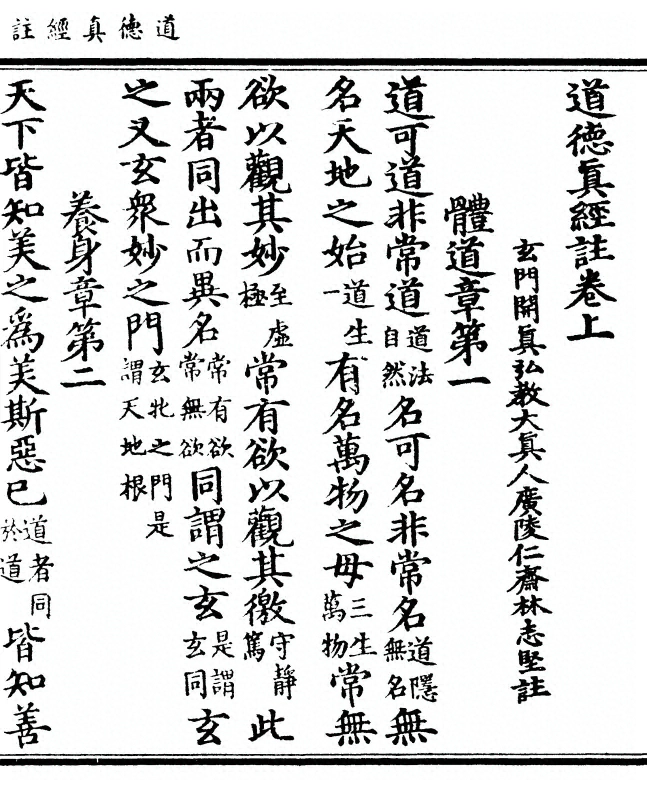 道德真經註
道德眞經註卷上
玄門開眞弘教大眞人廣陵仁齋林志堅註
體道章第一
道可道非常道道法自然名可名非常名道隱無名無
名天地之始道生一有名萬物之母三生萬物常無
欲以觀其妙至虛極常有欲以觀其徼守靜篤此
兩者同出而異名常有欲常無欲同謂之玄是謂玄同玄
之又玄衆妙之門玄牝之門是謂天地根
養身章第二
天下皆知美之爲美斯惡已道者同於道皆知善